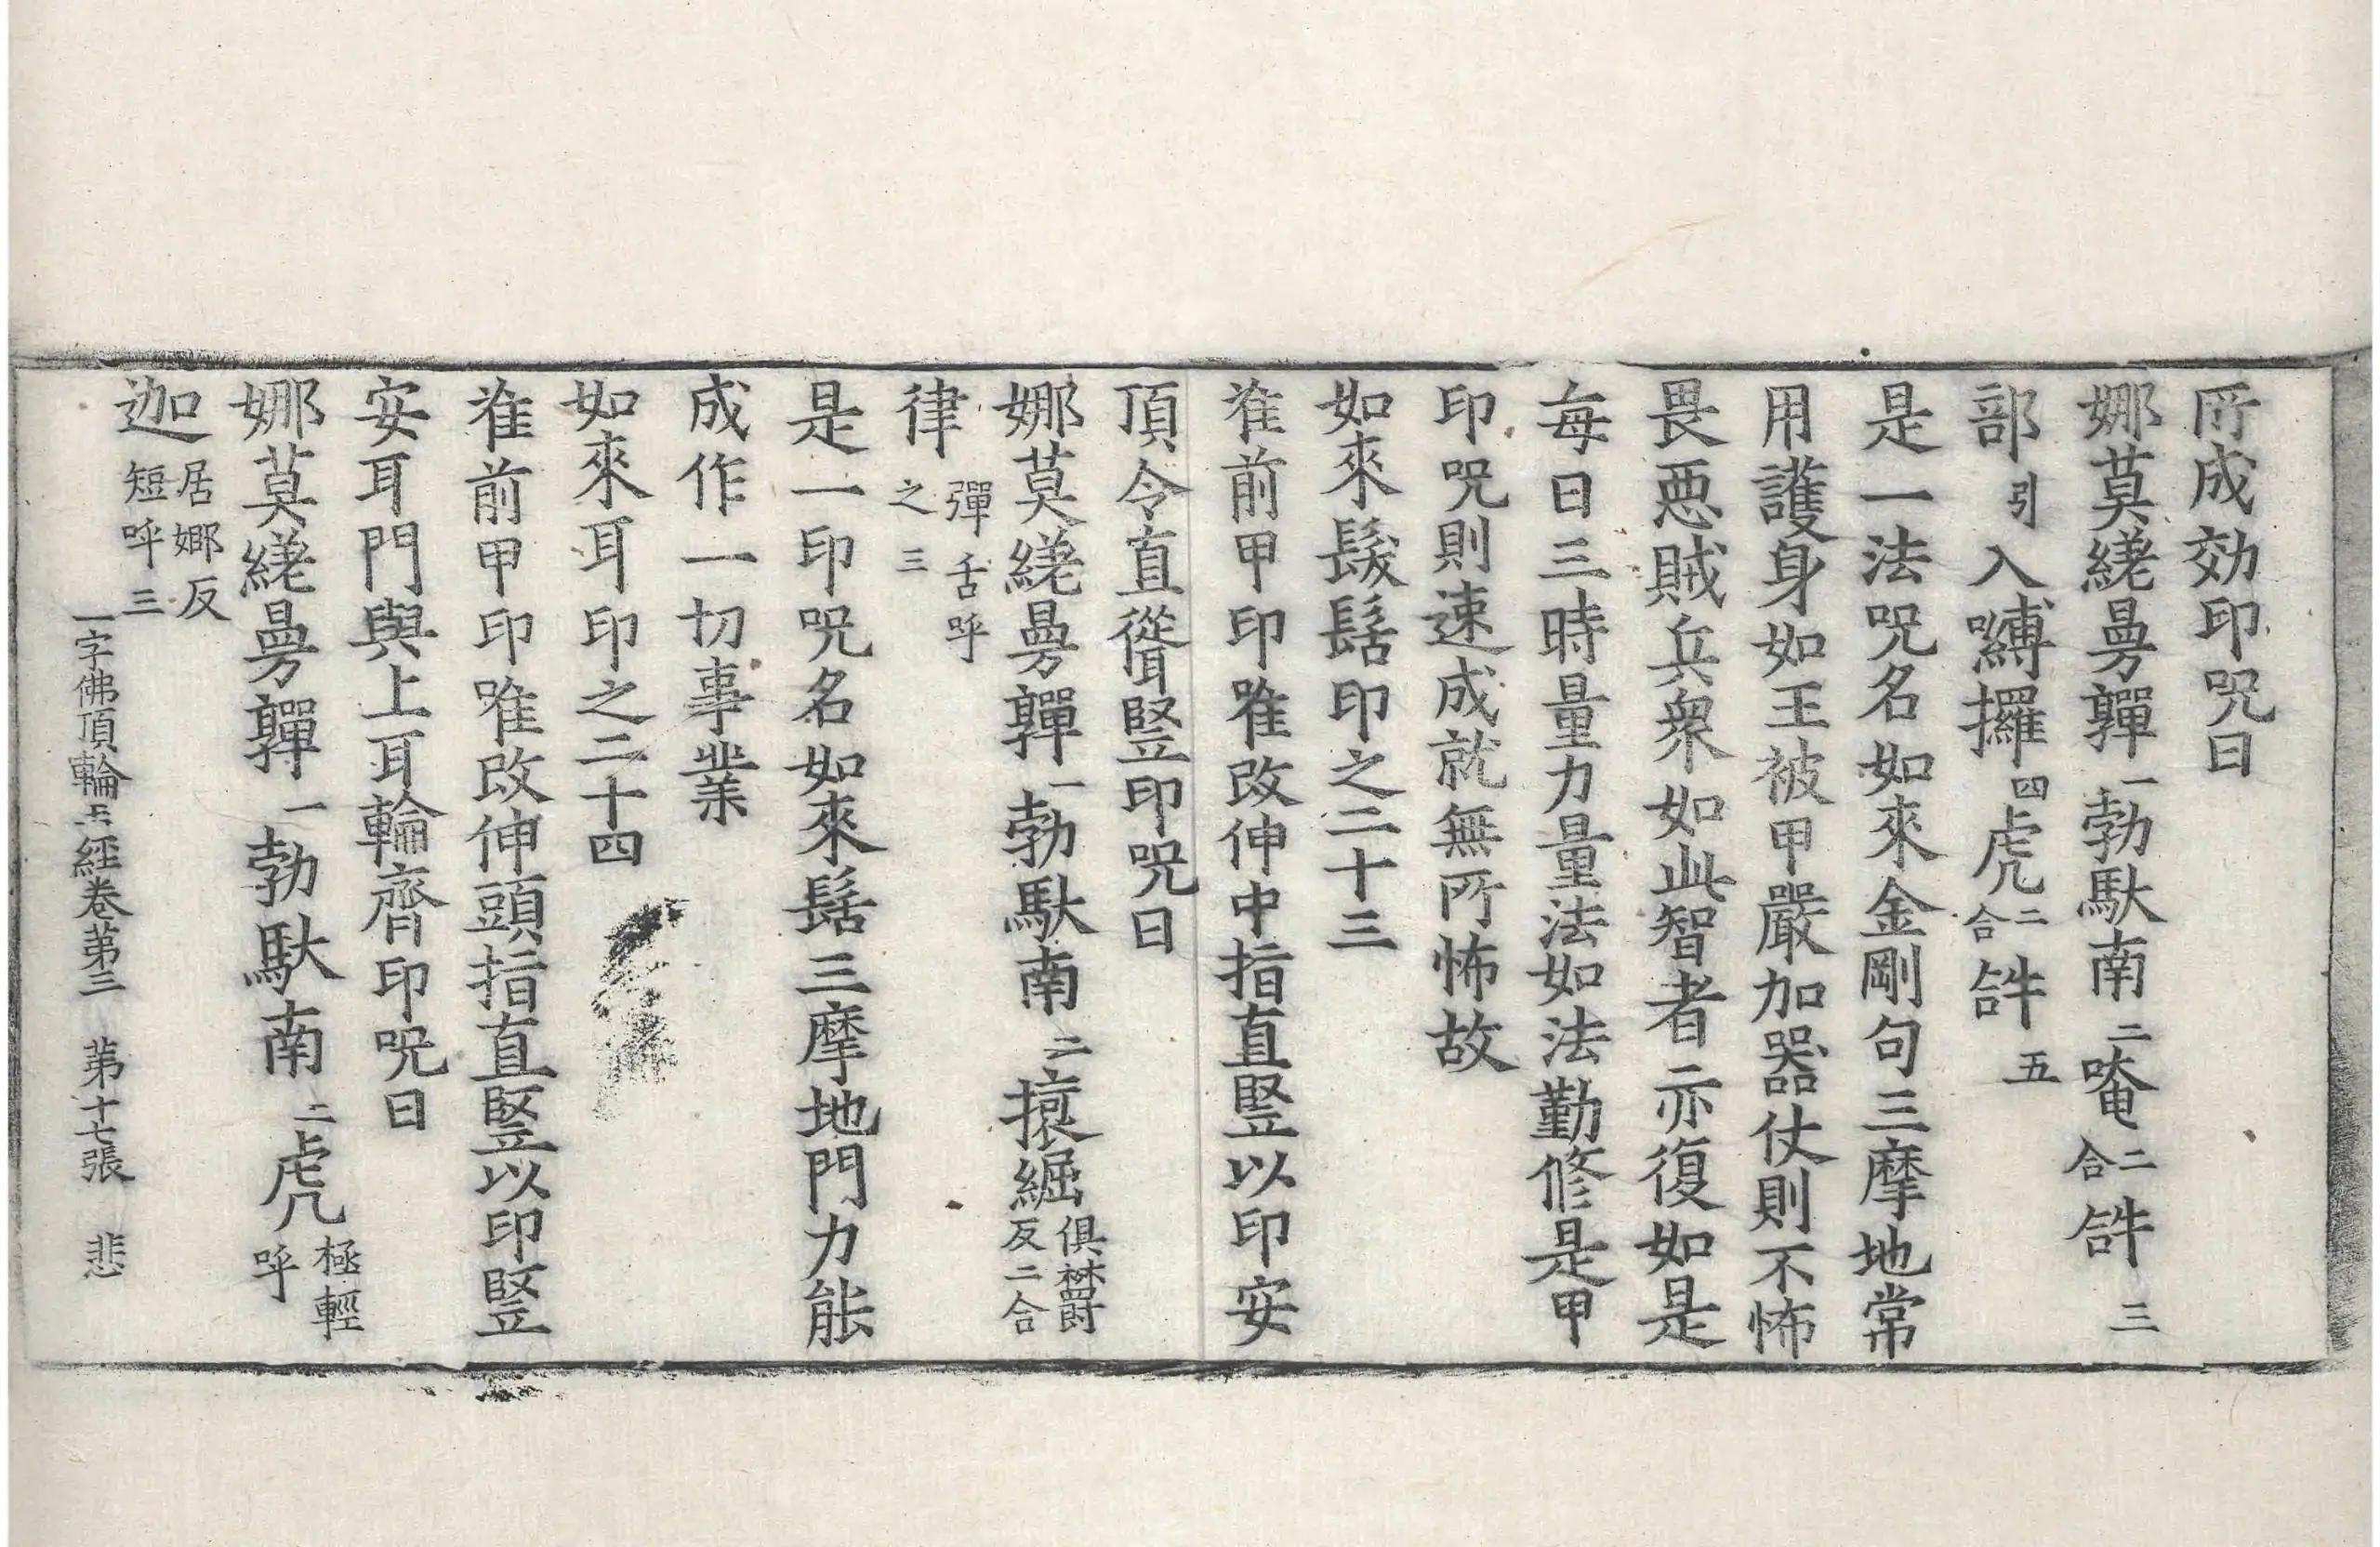 所成効印呪曰
娜莫縒曼嚲一勃馱南二唵二合𤙖三
部引入嚩攞四虎二合𤙖五
是一法呪名如來金剛句三摩地常
用護身如王被甲嚴加器仗則不怖
畏惡賊兵衆如此智者亦復如是
每日三時量力量法如法勤修是甲
印呪則速成就無所怖故
如來髮髻印之二十三
准前甲印唯改伸中指直竪以印安
頂令直從聳竪印呪曰
娜莫縒曼嚲一勃馱南二㧜俱鬱反二合
律彈舌呼之三
是一印呪名如來髻三摩地門力能
成作一切事業
如來耳印之二十四
准前甲印唯改伸頭指直竪以印竪
安耳門與上耳輪齊印呪曰
娜莫縒曼嚲一勃馱南二虎極輕呼
迦居娜反短呼三
一字佛頂輪王經卷第三　第十七張　悲